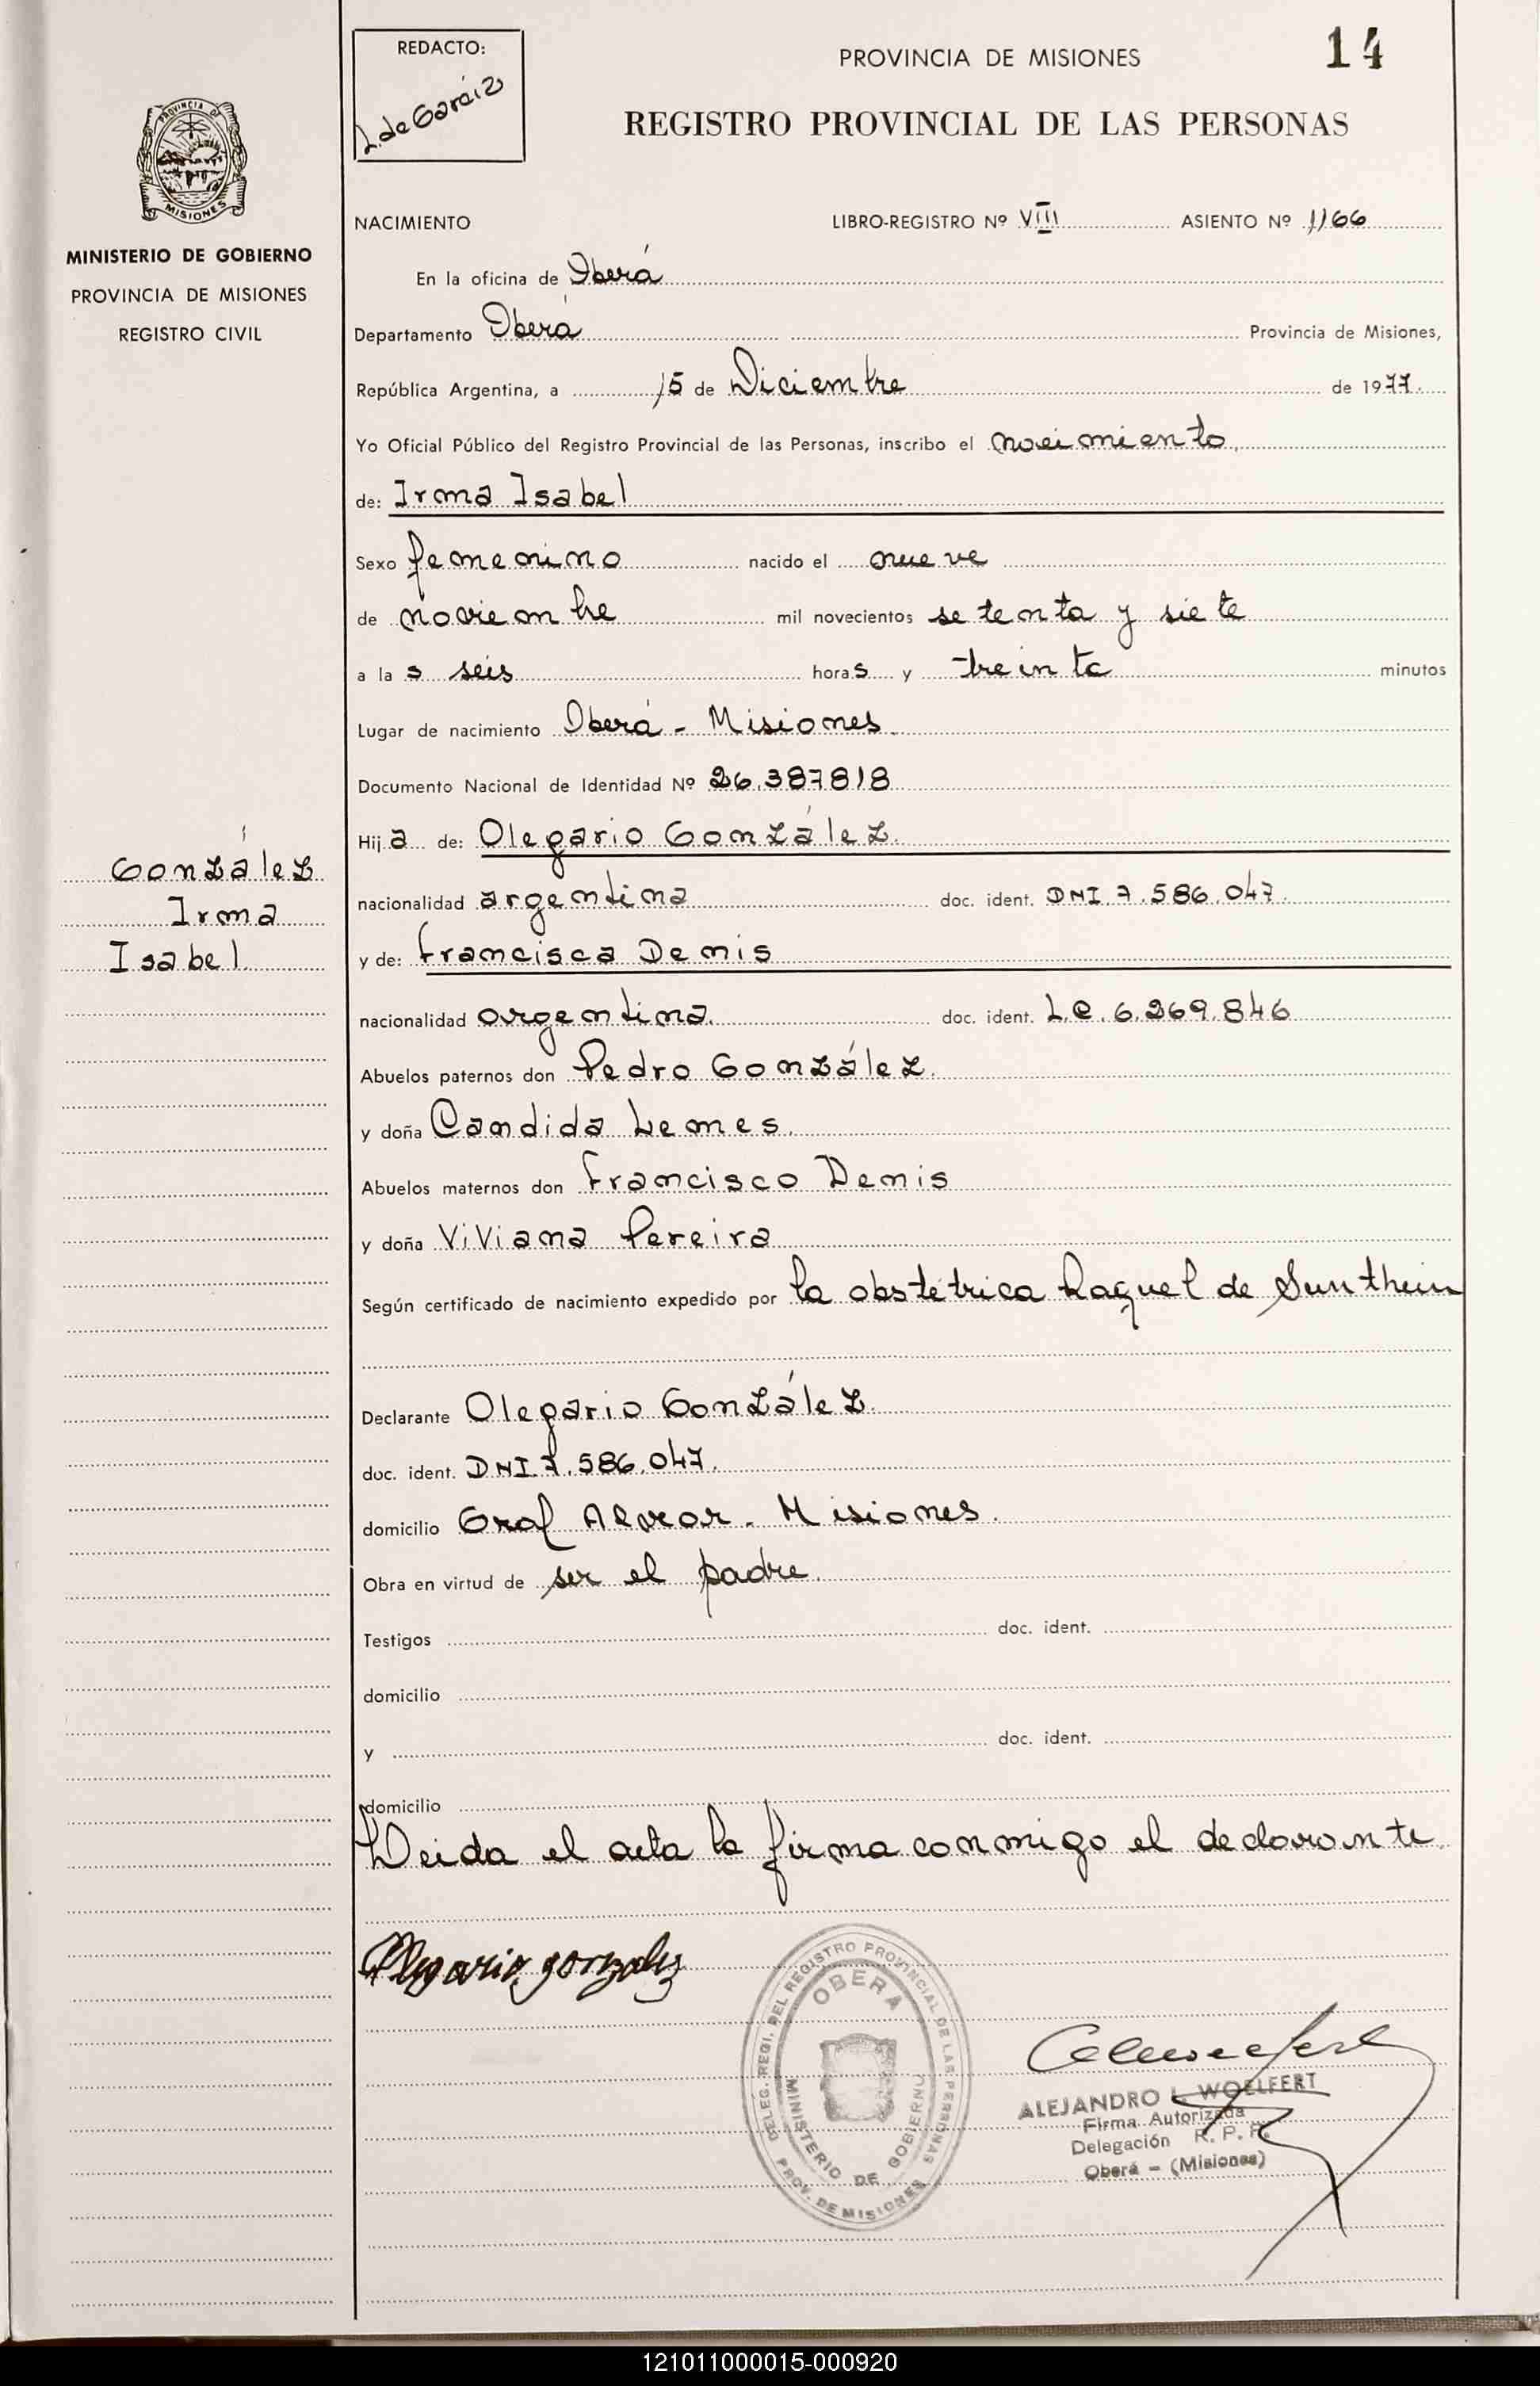 REDACTO:
L. de Garciz
PROVINCIA DE MISIONES
14
REGISTRO PROVINCIAL DE LAS PERSONAS
PROVINCIA DE
MISIONES
MINISTERIO DE GOBIERNO
PROVINCIA DE MISIONES
REGISTRO CIVIL
NACIMIENTO LIBRO-REGISTRO Nº VIII ASIENTO Nº 1166
En la oficina de Oberá
Departamento Oberá Provincia de Misiones,
República Argentina, a 15 de Diciembre de 1977.
Yo Oficial Público del Registro Provincial de las Personas, inscribo el nacimiento
de: Irma Isabel
Sexo femenino nacido el nueve
de noviembre mil novecientos setenta y siete
a las seis horas y treinta minutos
Lugar de nacimiento Oberá - Misiones
Documento Nacional de Identidad Nº 26.387818
Hija de: Olegario González.
González
Irma
Isabel
nacionalidad argentina doc. ident. DNI 7.586.047
y de: Francisca Demis
nacionalidad argentina. doc. ident. L.C. 6.269.846
Abuelos paternos don Pedro González.
y doña Candida Lemes.
Abuelos maternos don Francisco Demis
y doña Viviana Pereira
Según certificado de nacimiento expedido por la obstétrica Raquel de Sunthein
Declarante Olegario González.
doc. ident. DNI 7.586.047.
domicilio Gral Alvear - Misiones.
Obra en virtud de ser el padre.
Testigos doc. ident.
domicilio
y doc. ident.
domicilio
Leida el acta la firma conmigo el declarante.
Olegario gonzalez
DELEG. REGI. DEL REGISTRO PROVINCIAL DE LAS PERSONAS
OBERA
MINISTERIO DE GOBIERNO
PROV. DE MISIONES
ALEJANDRO L. WOELFERT
Firma Autorizada
Delegación R. P. P.
Oberá - (Misiones)
121011000015-000920